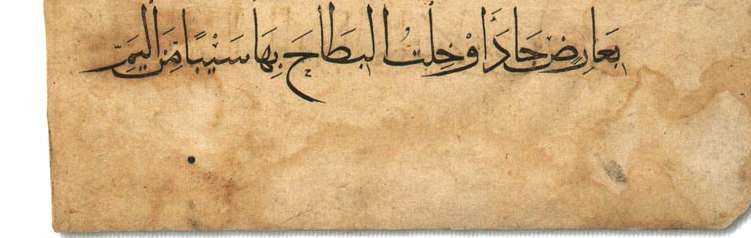 بِعَارِضٍ جَادَ أَوْ خِلْتُ الْبِطَاحَ بِهَا سَيْبًا مِّنَ الْيَمِّ